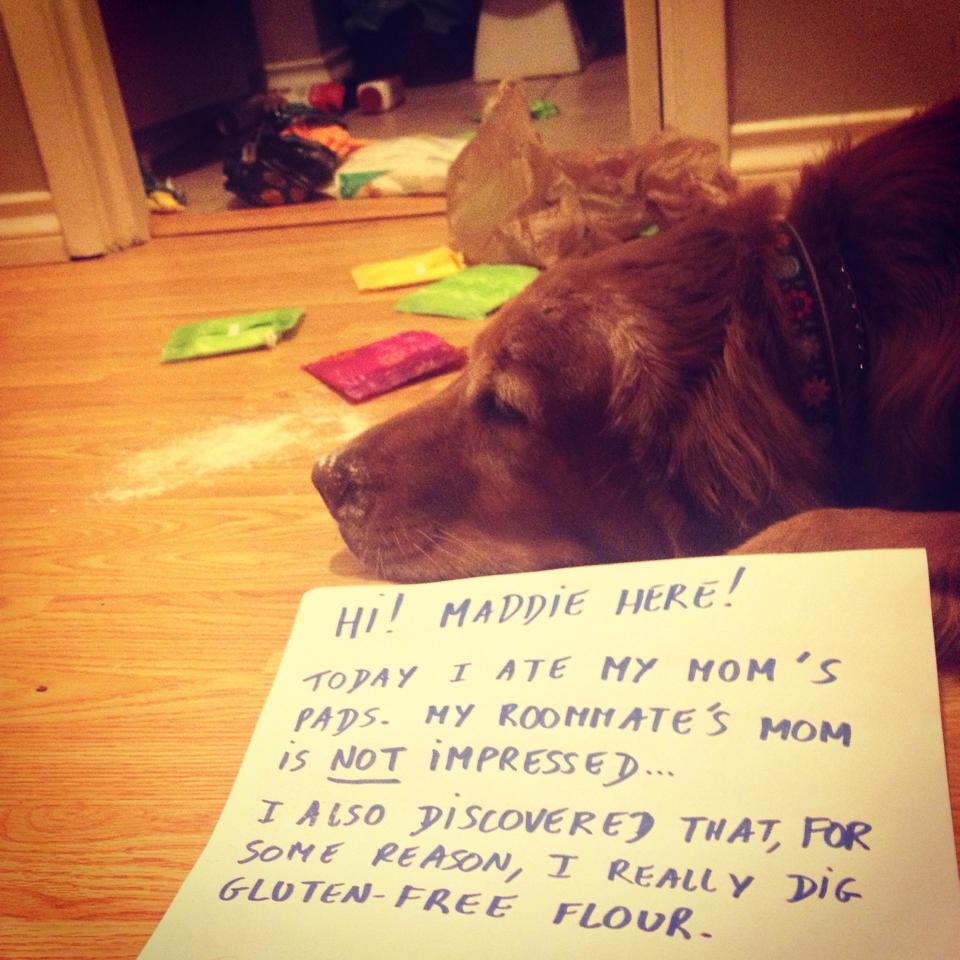 Hi! MADDiE HERE!
TODAY I ATE MY MOM'S
PADS. MY ROOMMATE'S MOM
iS NOT iMPRESSED...
I ALSO DiSCOVERED THAT, FOR
SOME REASON, I REALLY DiG
GLUTEN-FREE FLOUR.